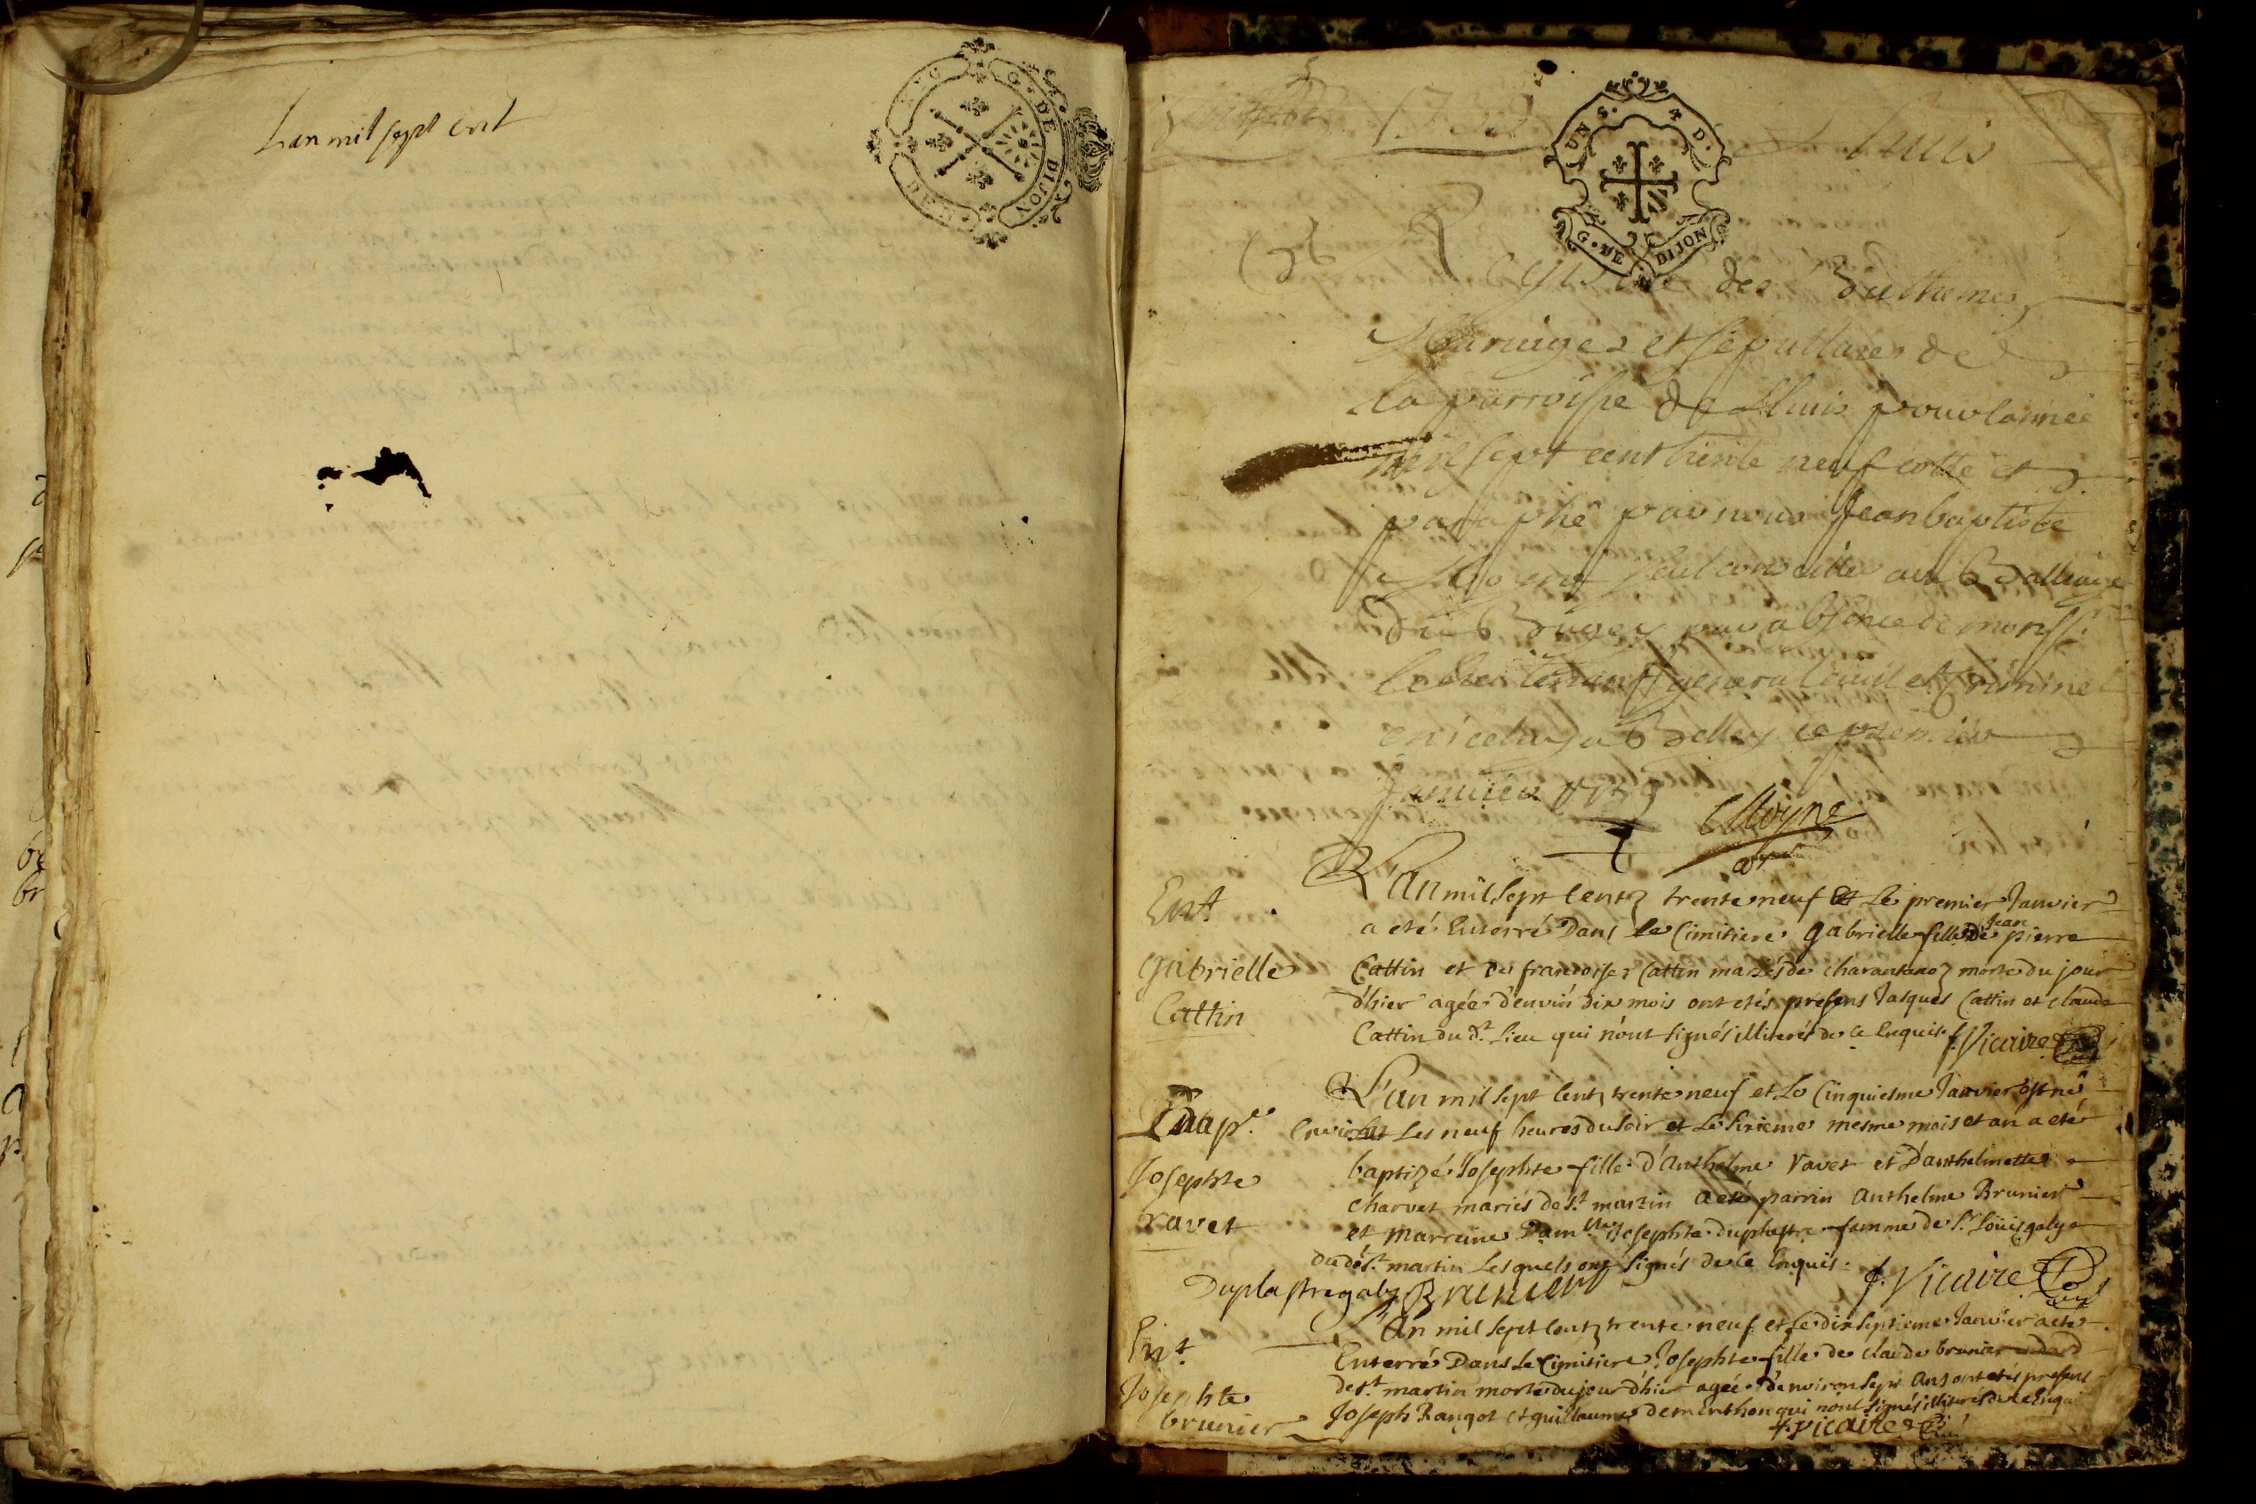 Lan mil sept cent
G. DE DIJON
UN S. 4 D.
G. DE DIJON
Lhuis
Registre des Bathemes
Mariages et sepultures de
la parroisse de Lhuis pour lannée
mil sept cent trente neuf cotté et
paraphé par nous Jean baptiste
seul conseiller au Balliage
du Bugey par absence de monsr.
le Lieutenant general Civil et Criminel
en iceluy a Belley ce premier
Janvier 1739
Ent.
Gabrielle
Cattin
L'an mil sept Centz trente neuf et Le premier Janvier
a eté Enterré Dans le Cimitiere gabrielle fille De Jean pierre
Cattin et De francoise Cattin mariés de charantonoz morte du jour
d'hier agée d'enviró dix mois ont etés presens Jasques Cattin et claude
Cattin du dt. Lieu qui n'ont signés illiterés de ce Enquis f. Vicaire
Bap.
Josephte
ravet
L'an mil sept Centz trente neuf et Le Cinquiesme Janvier est né
Environ Les neuf heures du soir et Le sixieme mesme mois et an a eté
baptizé Josephte fille d'Anthelme ravet et D'anthelmette
charvet mariés de st. martin a eté parrin Anthelme Brunier
et Marreine Damlle. Josephte duplastre femme de sr. Loüis galy
du dt st. martin Lesquels ont signés de ce Enquis.
Duplastre galy Brunier f. Vicaire
Ent.
Josephte
brunier
L'An mil sept Centz trente neuf et Le dix septieme Janvier a eté
Enterré Dans Le Cimitiere Josephte fille de claude brunier
de st. martin morte du jour d'hier agée d'environ sept Ans ont etés presens
Joseph Rangot et guillaume dementhon qui n'ont signés illiterés de ce Enquis
f. Vicaire